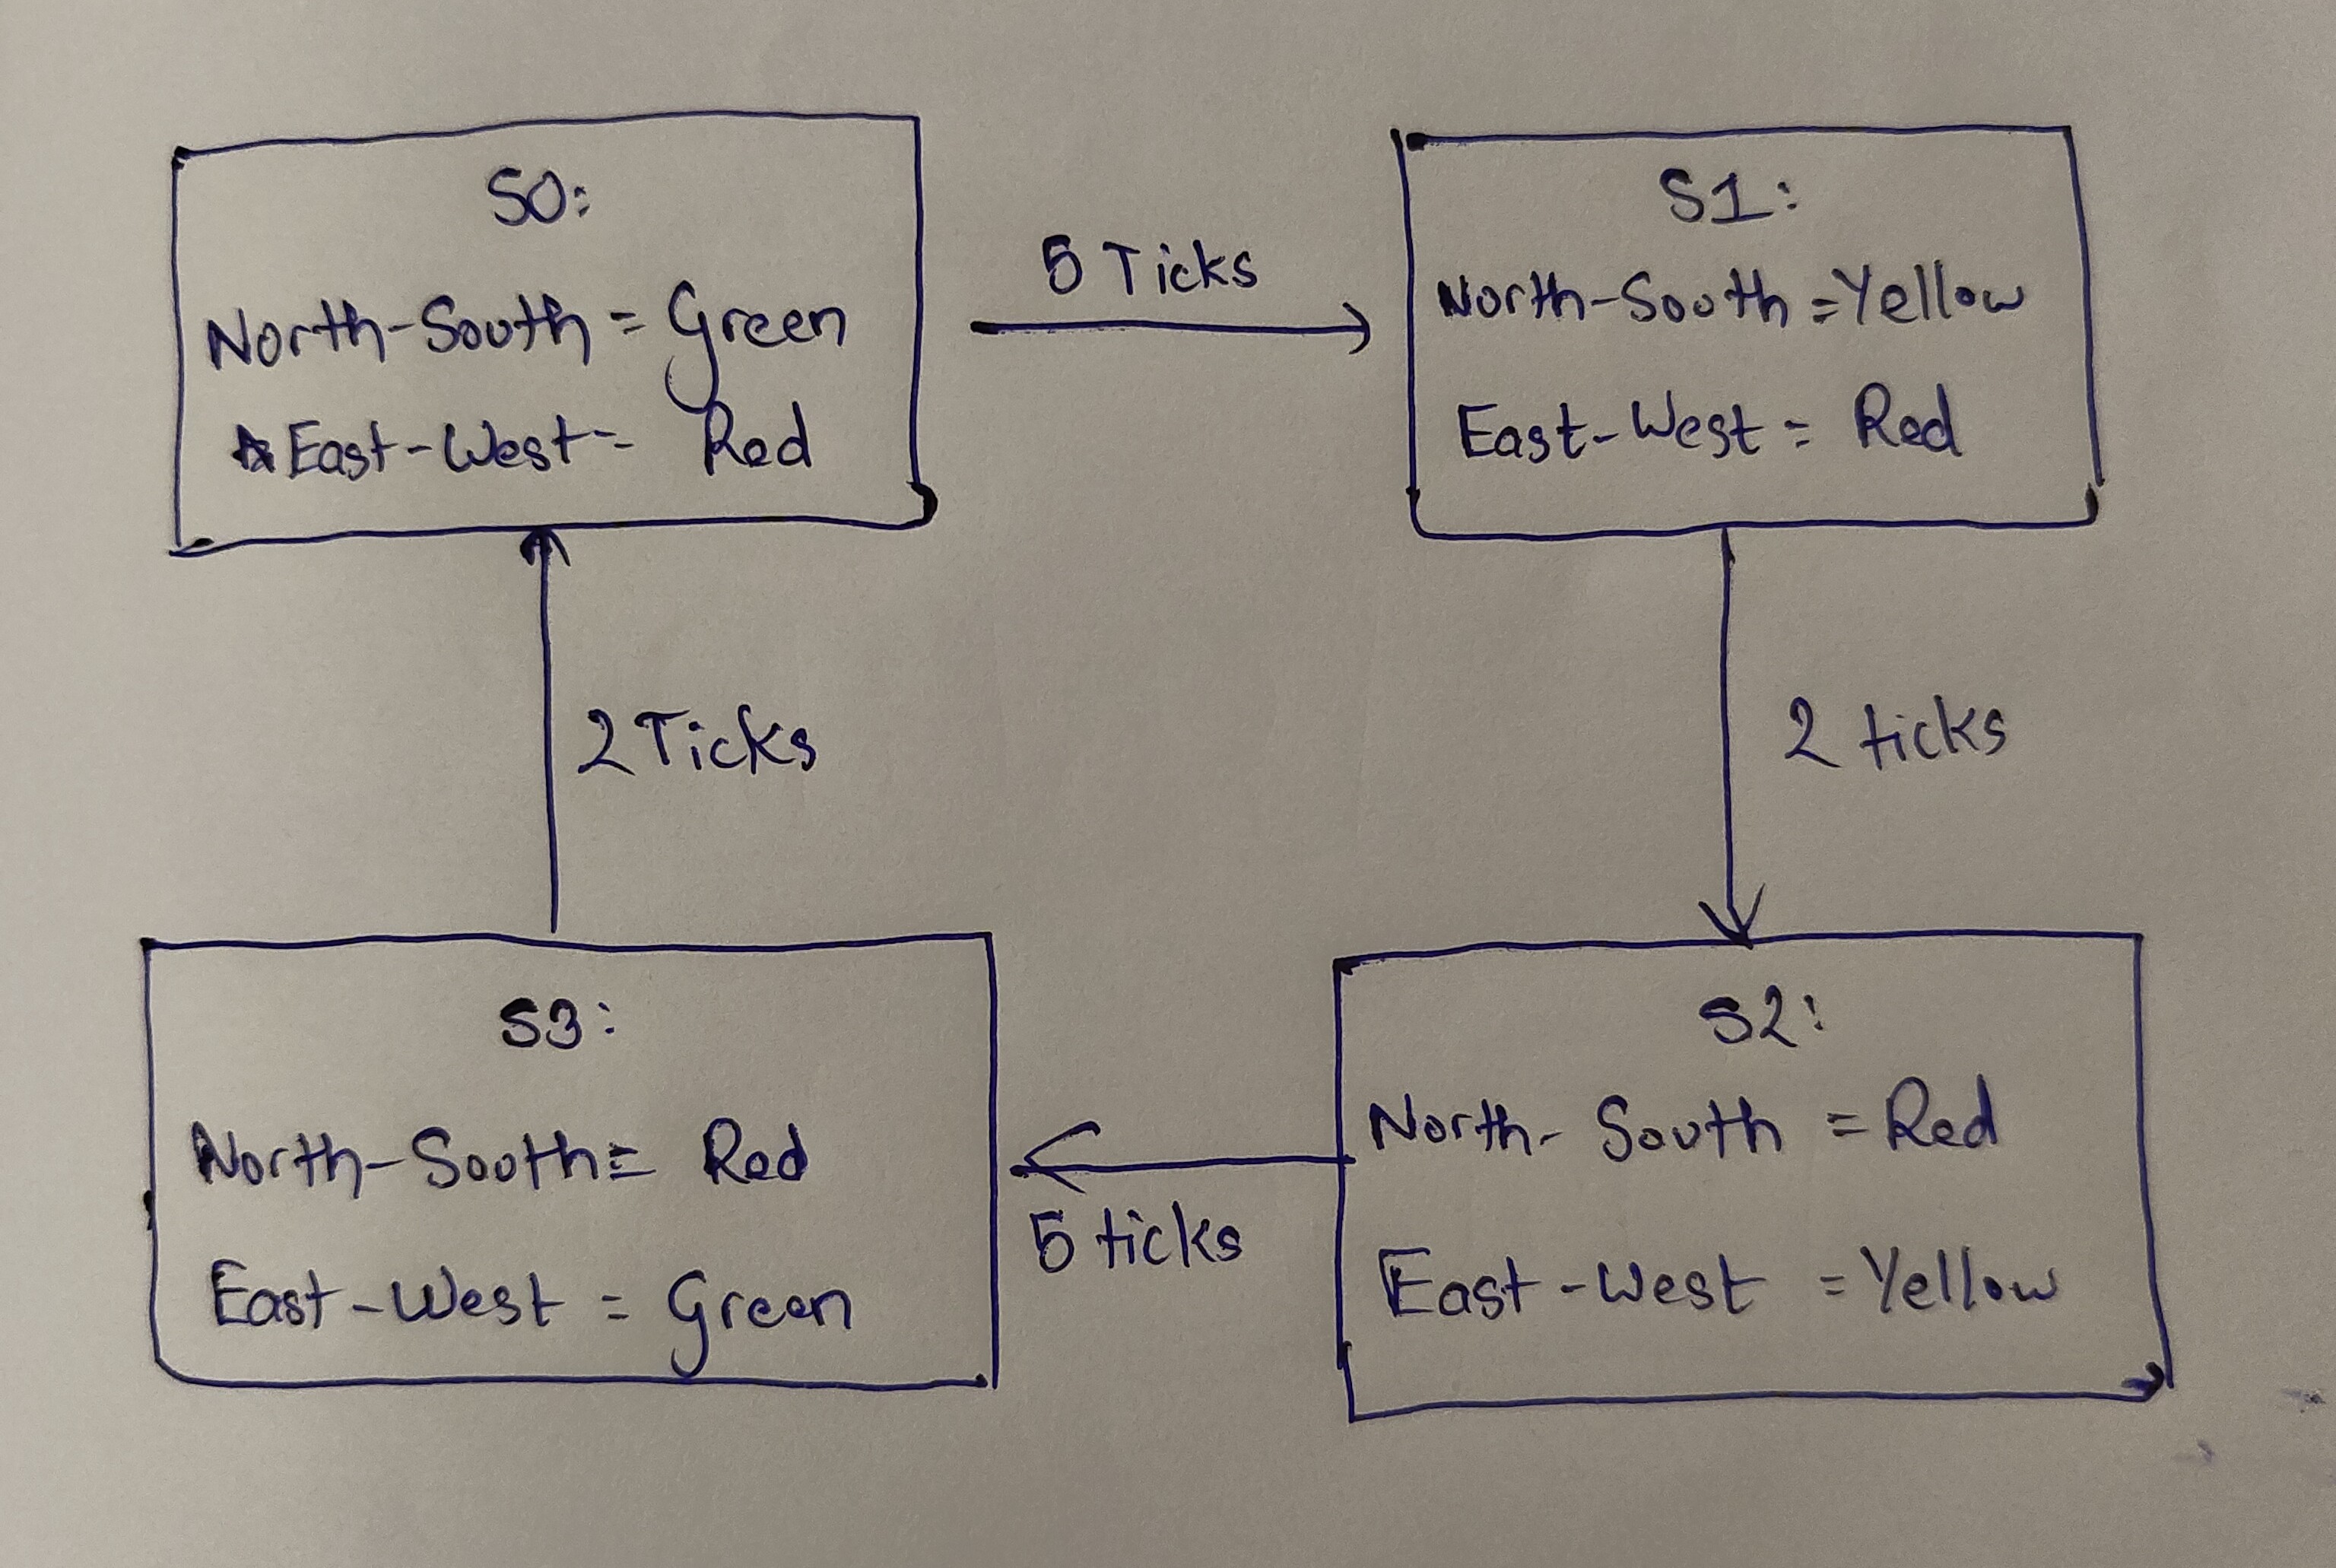 S0:
North-South = Green
East-West = Red
5 Ticks
S1:
North-South = Yellow
East-West = Red
2 Ticks
2 ticks
S3:
North-South = Red
East-West = Green
5 ticks
S2:
North-South = Red
East-West = Yellow